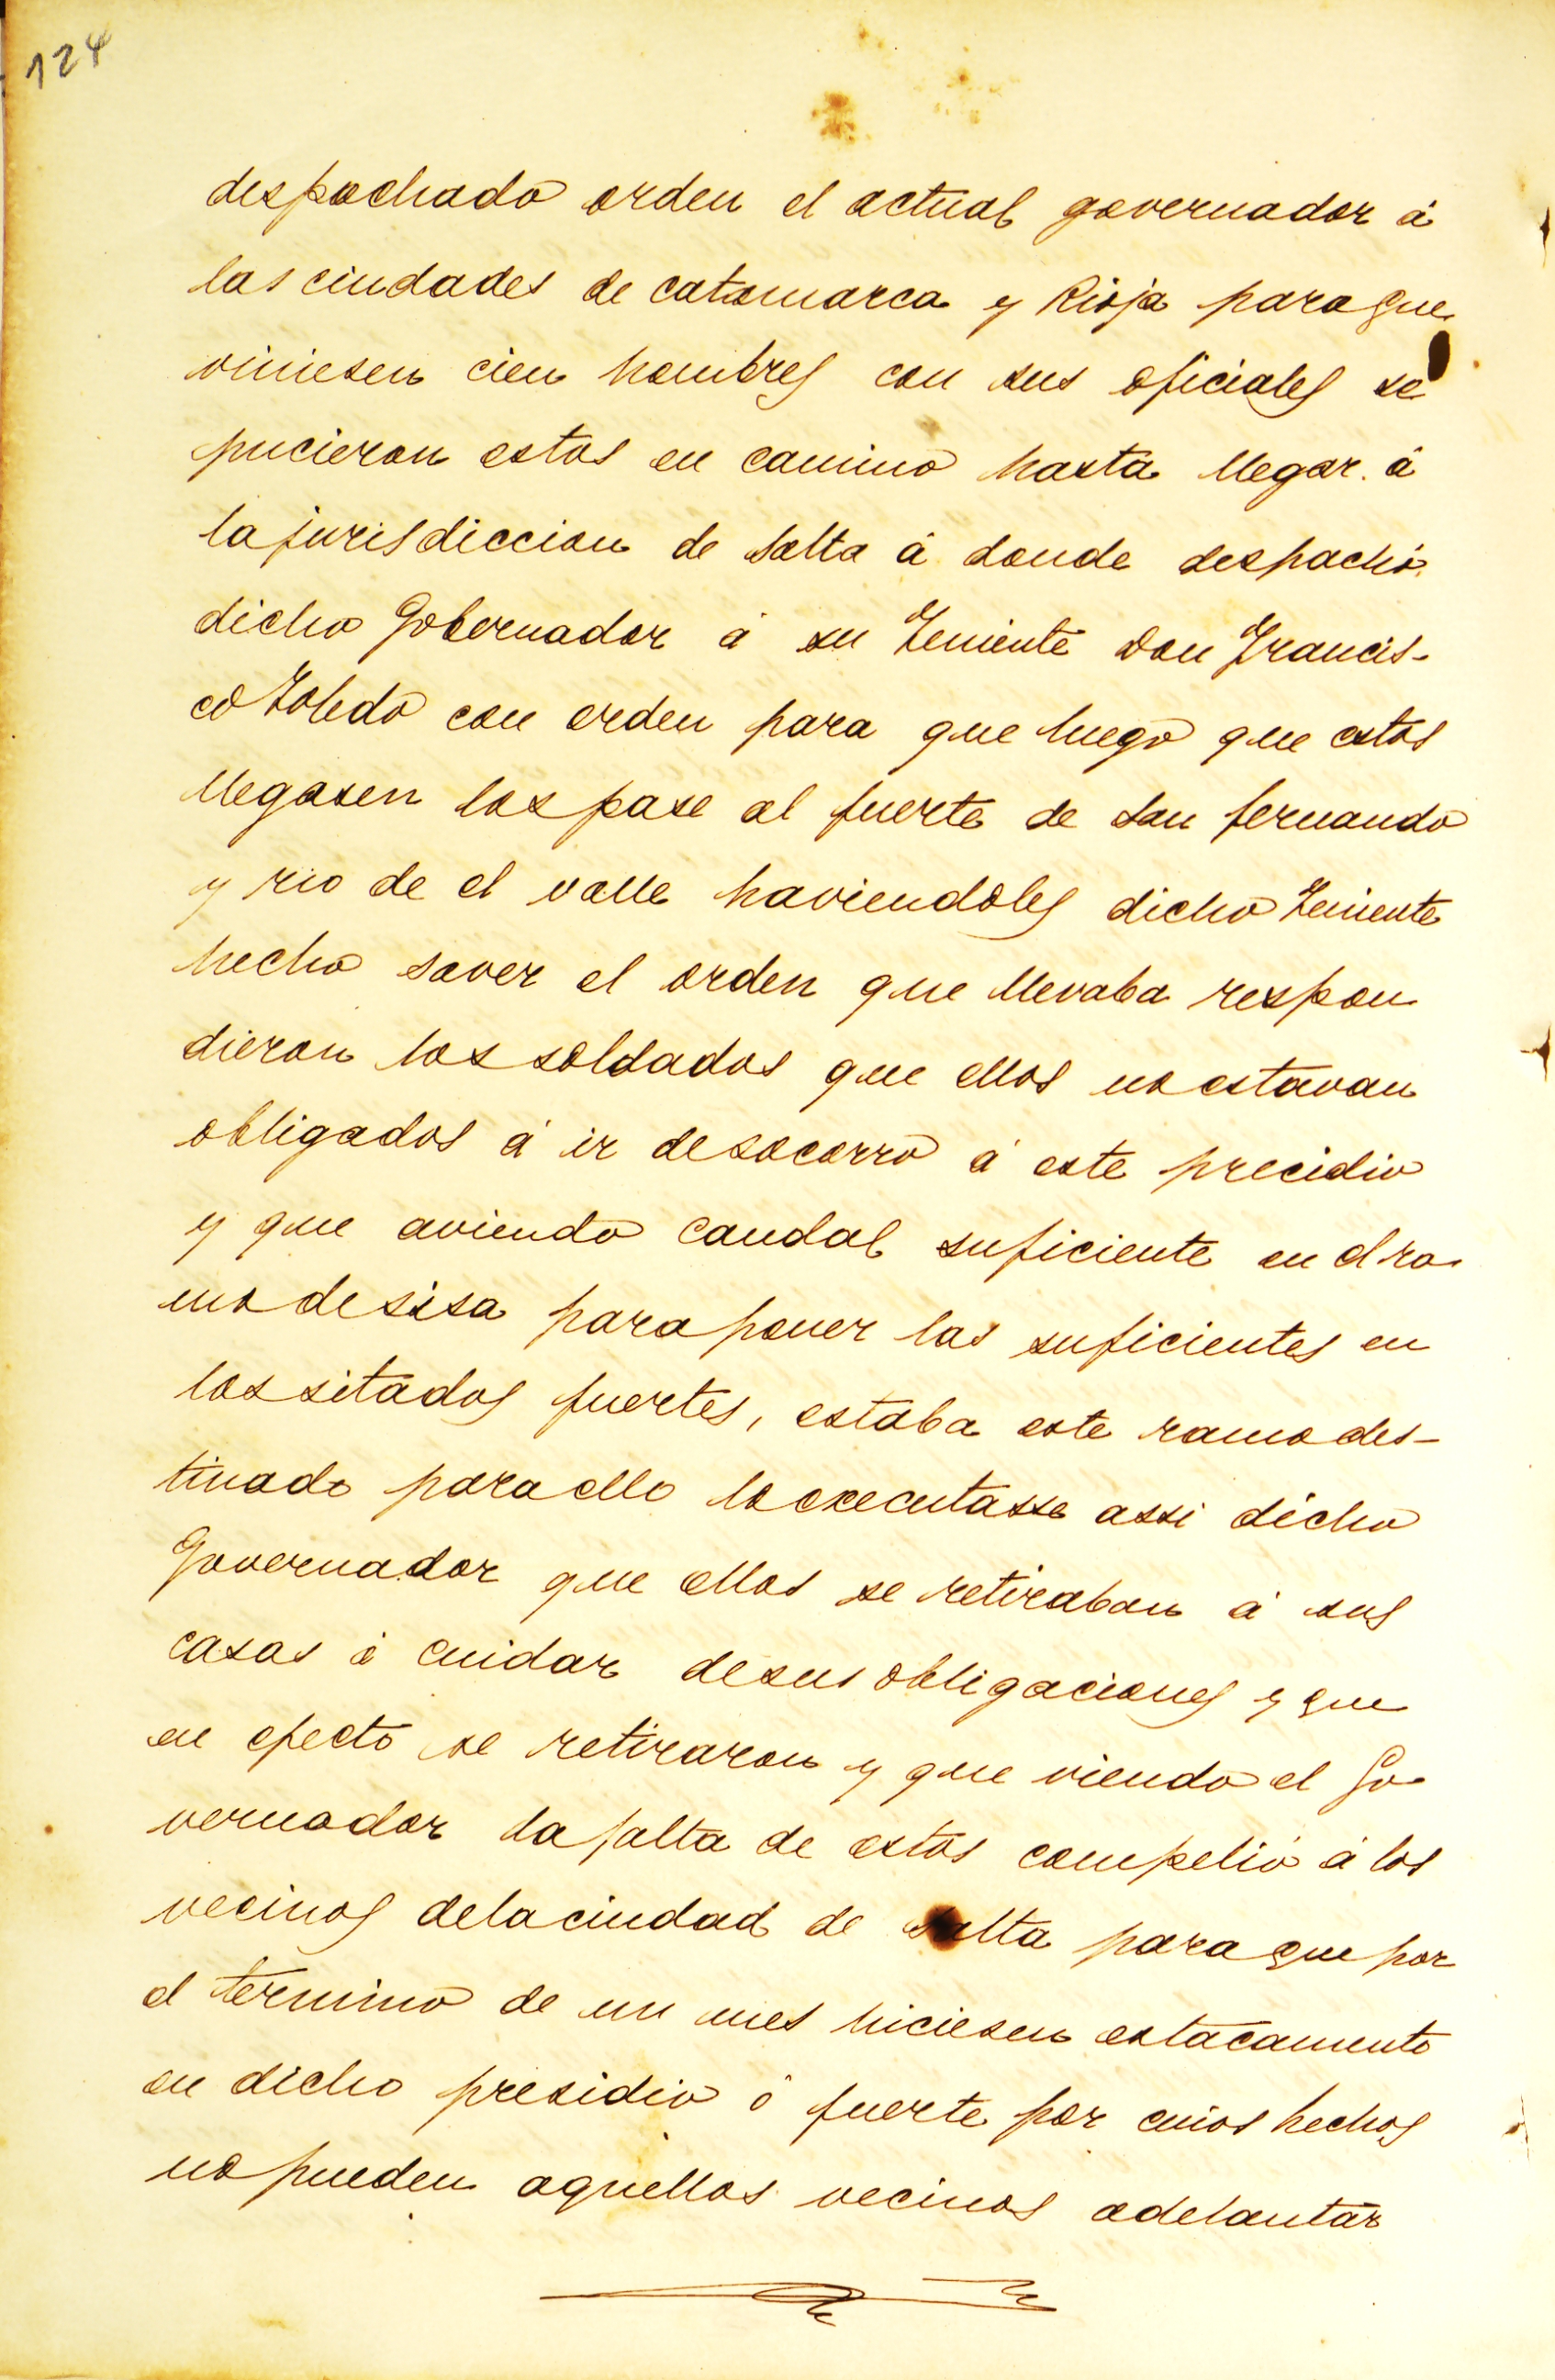 124
despachado orden el actual governador á
las ciudades de catamarca y Rioja para que
viniesen cien hombres con sus oficiales se
pucieron estos en camino hasta llegar á
la jurisdiccion de Salta á donde despachó
dicho Gobernador á su Teniente Don Francis-
co Toledo con orden para que luego que estos
llegasen los pase al fuerte de San fernando
y rio de el valle haviendoles dicho Teniente
hecho saver el orden que llevaba respon
dieron los soldados que ellos no estavan
obligados á ir de socorro á este precidio
y que aviendo caudal suficiente en el ra
mo de sisa para poner las suficientes en
los sitados fuertes, estaba este ramo des-
tinado para ello lo executasse assi dicho
Governador que ellos se retiraban á sus
casas á cuidar de sus obligaciones y que
en efecto se retiraron y que viendo el Go
vernador la falta de estos compelió á los
vecinos de la ciudad de Salta para que por
el termino de un mes hiciesen estacamento
en dicho presidio ó fuerte por cuios hechos
no pueden aquellos vecinos adelantar